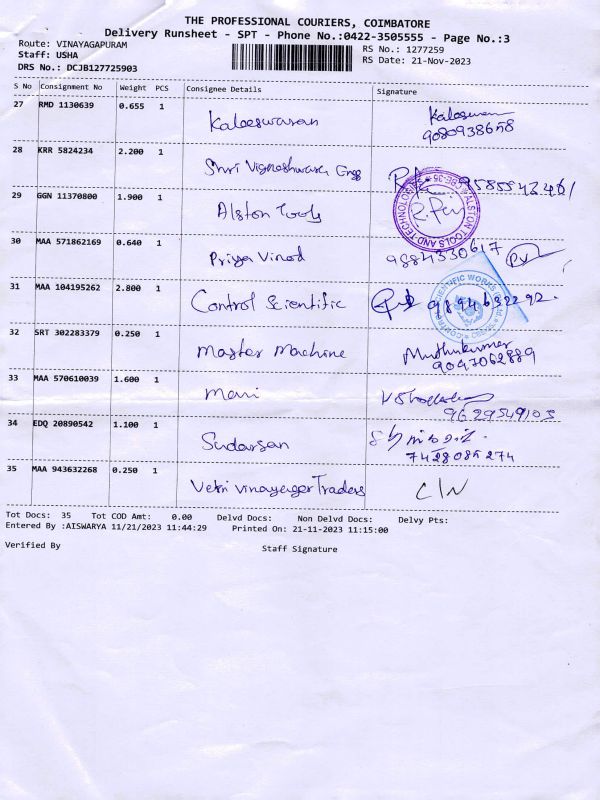 THE PROFESSIONAL COURIERS, COIMBATORE
Delivery Runsheet - SPT - Phone No.:0422-3505555 - Page No.:3
Route: VINAYAGAPURAM
Staff: USHA
DRS No.: DCJB127725903
RS No.: 1277259
RS Date: 21-Nov-2023
S No Consignment No Weight PCS Consignee Details Signature
27 RMD 1130639 0.655 1 Kaleeswaran Kaleswaran
9080938658
28 KRR 5824234 2.200 1 Shri Vigneshwara Engg
29 GGN 11370800 1.900 1 Alston Tools R.
ALSTON TOOLS AND TECHNOLOGIES
30 MAA 571862169 0.640 1 Priya Vinod 9884330617
31 MAA 104195262 2.800 1 Control Scientific 9894632292.
32 SRT 302283379 0.250 1 Master Machine Muthukumar
9047062889
33 MAA 570610039 1.600 1 Mani
9629549103
34 EDQ 20890542 1.100 1 Sudarsan
7428085274
35 MAA 943632268 0.250 1 Vetri Vinayager Traders C/N
Tot Docs: 35 Tot COD Amt: 0.00 Delvd Docs: Non Delvd Docs: Delvy Pts:
Entered By :AISWARYA 11/21/2023 11:44:29 Printed On: 21-11-2023 11:15:00
Verified By Staff Signature